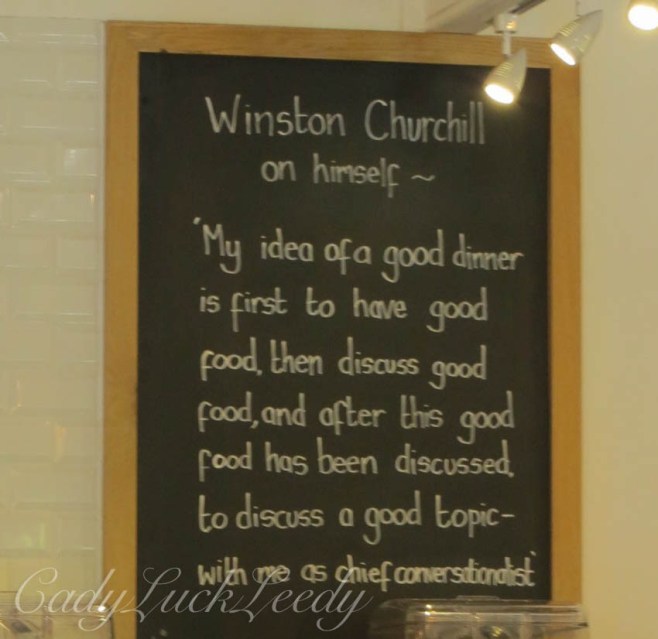 Winston Churchill
on himself ~
'My idea of a good dinner
is first to have good
food, then discuss good
food, and after this good
food has been discussed,
to discuss a good topic-
with me as chief conversationalist'
CadyLuckLeedy